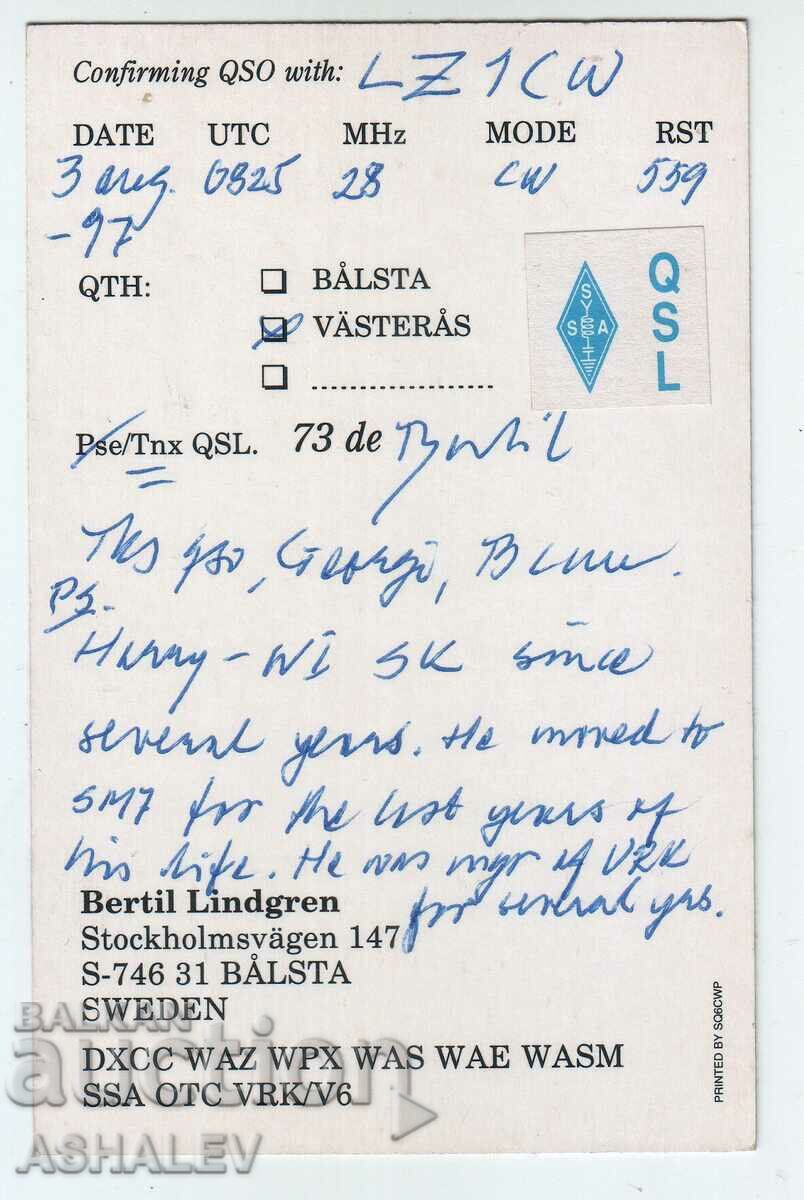 Confirming QSO with: LZ1CW
DATE UTC MHz MODE RST
3 aug. 0825 28 CW 559
-97
QTH: ❑ BÅLSTA
❑ VÄSTERÅS
❑ ....................
S
Y
S A
QSL
Pse/Tnx QSL. 73 de Bertil
Tks qso, Georgi,
PS.
Harry - WI SK since
several years. He moved to
SM7 for the last years of
his life. He was mgr of VRK
for several yrs.
Bertil Lindgren
Stockholmsvägen 147
S-746 31 BÅLSTA
SWEDEN
DXCC WAZ WPX WAS WAE WASM
SSA OTC VRK/V6
PRINTED BY SQ6CWP
BALKAN
auction
ASHALEV